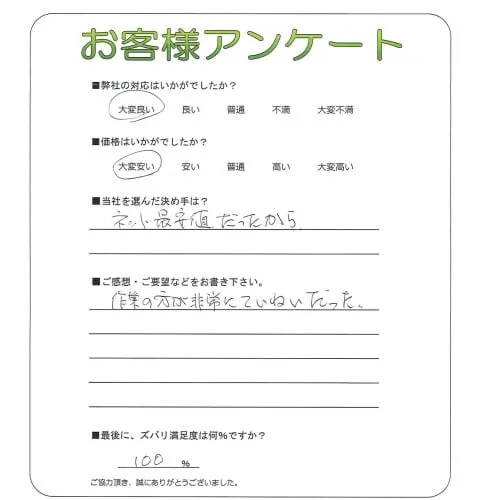 お客様アンケート
■弊社の対応はいかがでしたか?
大変良い 良い 普通 不満 大変不満
■価格はいかがでしたか?
大変安い 安い 普通 高い 大変高い
■当社を選んだ決め手は?
ネット最安値だったから
■ご感想・ご要望などをお書き下さい。
作業の方が非常にていねいだった。
■最後に、ズバリ満足度は何%ですか?
100 %
ご協力頂き、誠にありがとうございました。